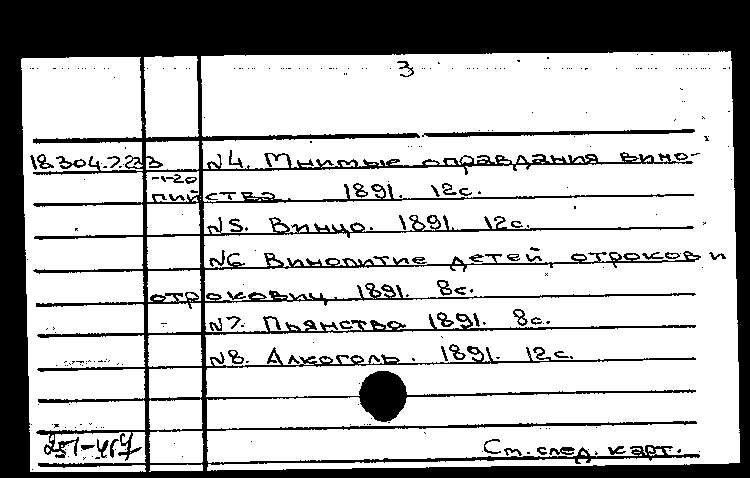 3
18.304.7.233 N4. Мнимые оправдания вино-
-1-20
пийства. 1891. 12с.
N5. Винцо. 1891. 12с.
N6 Винопитие детей, отроков и
отроковиц. 1891. 8с.
N7. Пьянство 1891. 8с.
N8. Алкоголь. 1891. 12с.
См. след. карт.